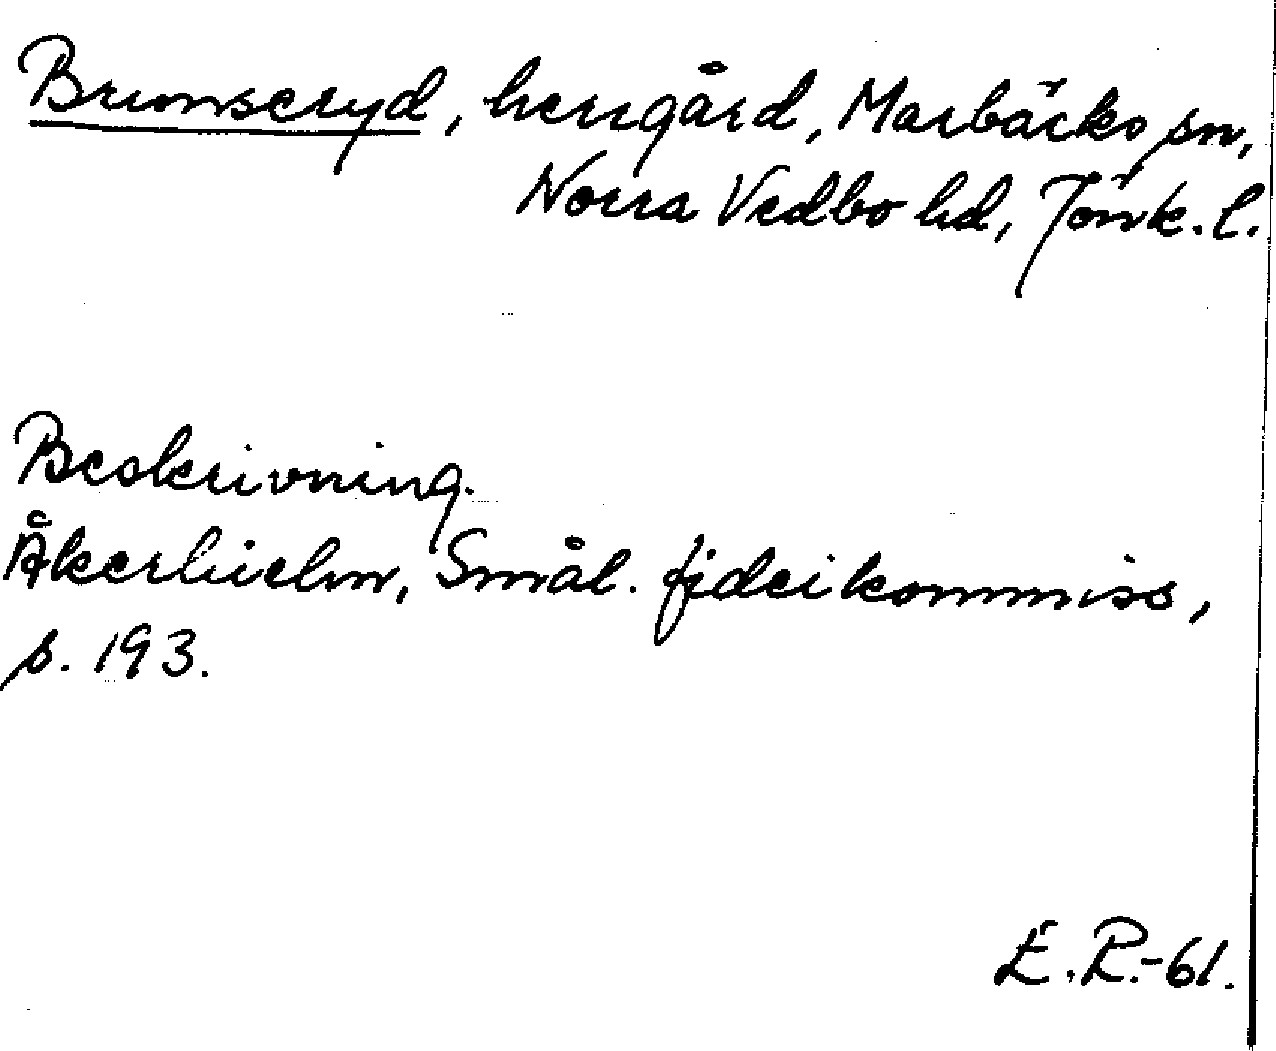 Brunseryd, herrgård, Marbäcks sn,
Norra Vedbo hd, Jönk. l.
Beskrivning.
Åkerhielm, Smål. fideikommiss,
s. 193.
E.R.-61.